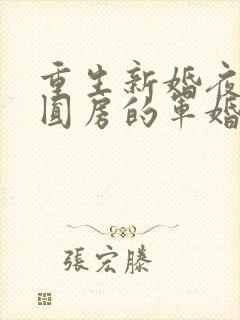 重生新婚夜
圓房的軍婚
張宏滕